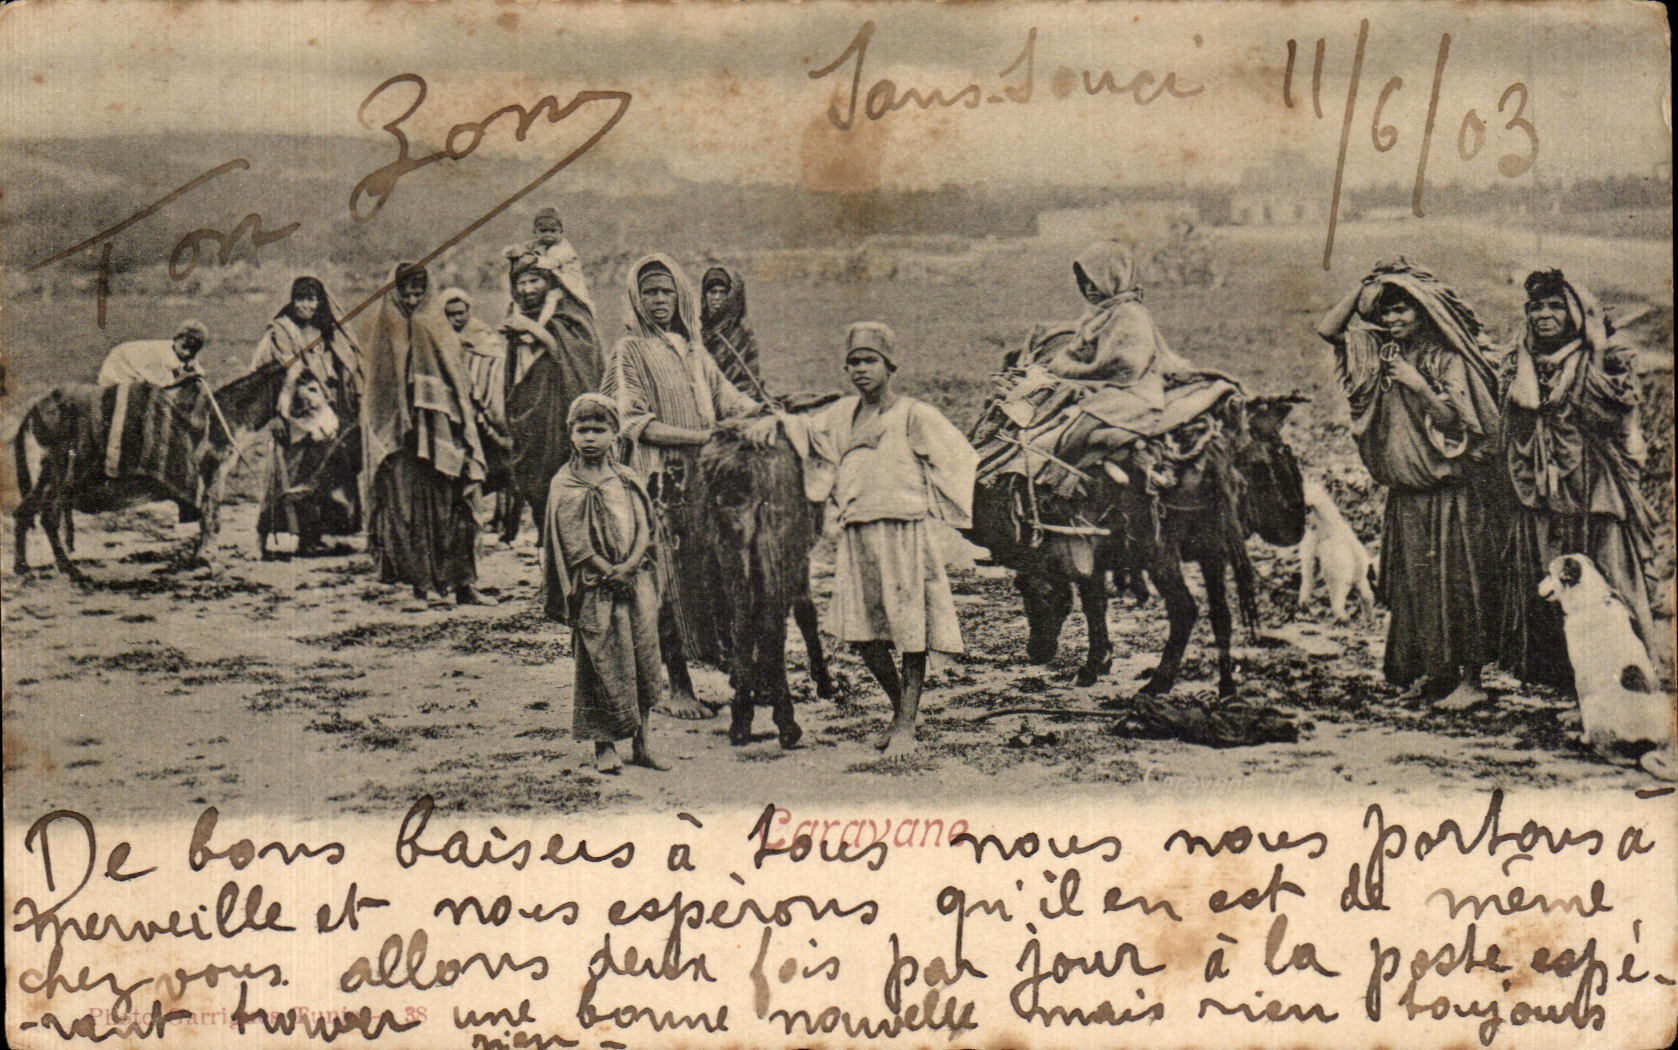 Sans-Souci 11/6/03
Ton Zon
Caravane
De bons baisers à tous nous nous portons à
merveille et nous espèrons qu'il en est de même
chez vous. allons deux fois par jour à la poste espé-
-rant trouver une bonne nouvelle mais rien toujours
rien -
Photo Garrigues, Tunis. 38